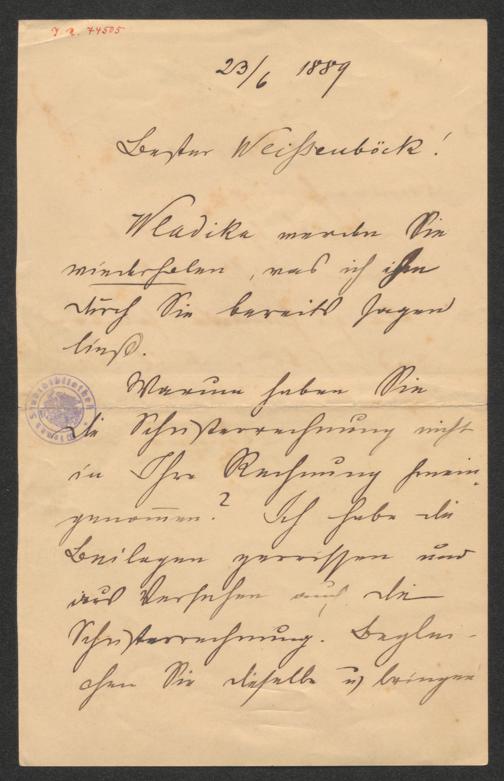 J. N. 74505
23/6 1889
Bester Weissenböck!
Wladika werden Sie
wiederholen, was ich ihm
durch Sie bereits sagen
ließ.
Warum haben Sie
die Schusterrechnung nicht
in Ihre Rechnung hinein-
genommen? Ich habe die
Beilagen zerrissen und
aus Versehen auch die
Schusterrechnung. Beglei-
chen Sie dieselbe u bringen
Stadtbibliothek